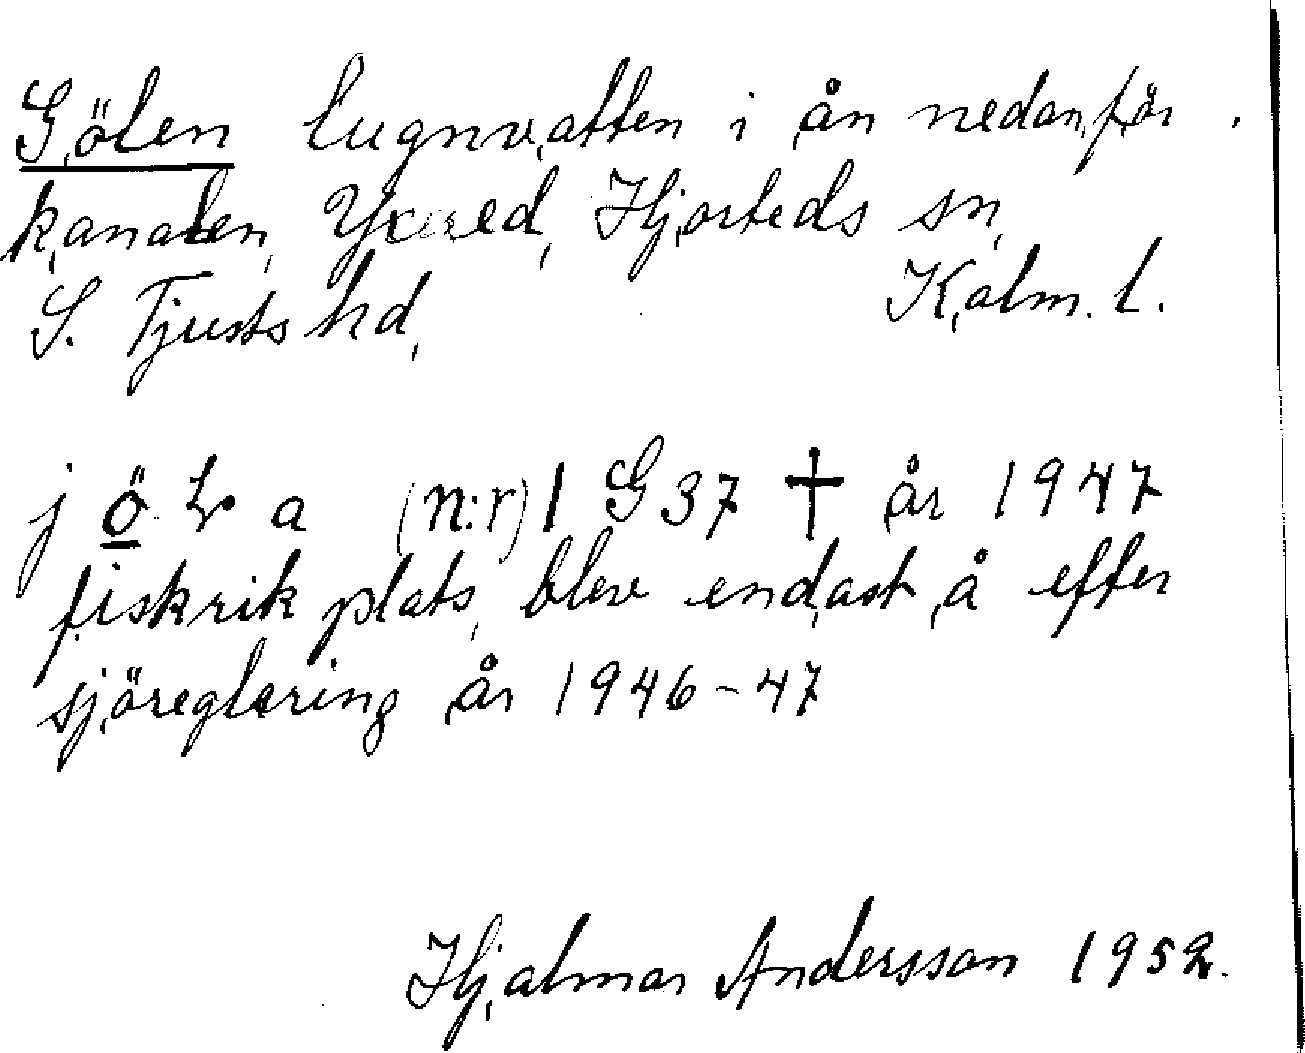 Gölen lugnvatten i ån nedanför
kanalen, Yxered, Hjorteds sn,
S. Tjusts hd, Kalm. l.
j ö l a (n:r) 1 G 37 † år 1947
fiskrik plats, blev endast å efter
sjöreglering år 1946-47
Hjalmar Andersson 1952.